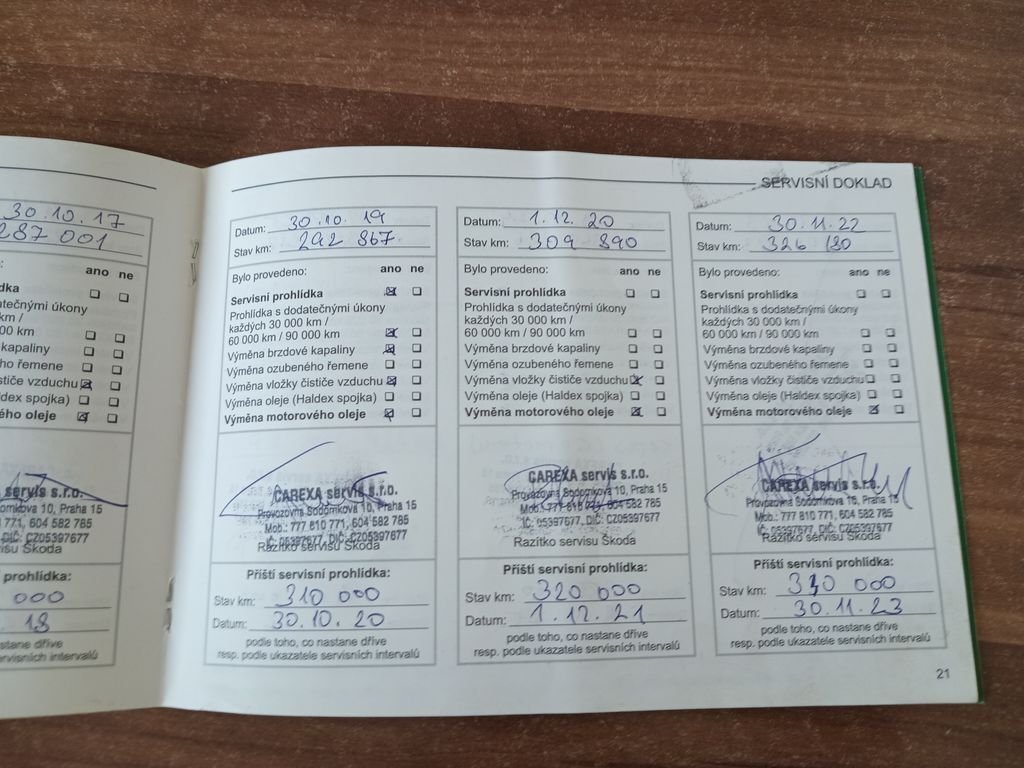 SERVISNÍ DOKLAD
30.10.17
287 001
ano ne
dka
datečnými úkony
km /
000 km
kapaliny
ho řemene
stiče vzduchu
ldex spojka)
ého oleje
servis s.r.o.
omkova 10, Praha 15
771, 604 582 785
DIČ: CZ05397677
visu Škoda
prohlídka:
000
18
stane dříve
ervisních intervalů
Datum: 30.10.19
Stav km: 292 867
Bylo provedeno: ano ne
Servisní prohlídka
Prohlídka s dodatečnými úkony
každých 30 000 km /
60 000 km / 90 000 km
Výměna brzdové kapaliny
Výměna ozubeného řemene
Výměna vložky čističe vzduchu
Výměna oleje (Haldex spojka)
Výměna motorového oleje
CAREXA servis s.r.o.
Provozovna Sodomkova 10, Praha 15
Mob.: 777 810 771, 604 582 785
IČ: 05397677, DIČ: CZ05397677
Razítko servisu Škoda
Příští servisní prohlídka:
Stav km: 310 000
Datum: 30.10.20
podle toho, co nastane dříve
resp. podle ukazatele servisních intervalů
Datum: 1.12.20
Stav km: 309 890
Bylo provedeno: ano ne
Servisní prohlídka
Prohlídka s dodatečnými úkony
každých 30 000 km /
60 000 km / 90 000 km
Výměna brzdové kapaliny
Výměna ozubeného řemene
Výměna vložky čističe vzduchu
Výměna oleje (Haldex spojka)
Výměna motorového oleje
CAREXA servis s.r.o.
Provozovna Sodomkova 10, Praha 15
Mob.: 777 810 771, 604 582 785
IČ: 05397677, DIČ: CZ05397677
Razítko servisu Škoda
Příští servisní prohlídka:
Stav km: 320 000
Datum: 1.12.21
podle toho, co nastane dříve
resp. podle ukazatele servisních intervalů
Datum: 30.11.22
Stav km: 326 180
Bylo provedeno: ano ne
Servisní prohlídka
Prohlídka s dodatečnými úkony
každých 30 000 km /
60 000 km / 90 000 km
Výměna brzdové kapaliny
Výměna ozubeného řemene
Výměna vložky čističe vzduchu
Výměna oleje (Haldex spojka)
Výměna motorového oleje
CAREXA servis s.r.o.
Provozovna Sodomkova 10, Praha 15
Mob.: 777 810 771, 604 582 785
IČ: 05397677, DIČ: CZ05397677
Razítko servisu Škoda
Příští servisní prohlídka:
Stav km: 340 000
Datum: 30.11.23
podle toho, co nastane dříve
resp. podle ukazatele servisních intervalů
21